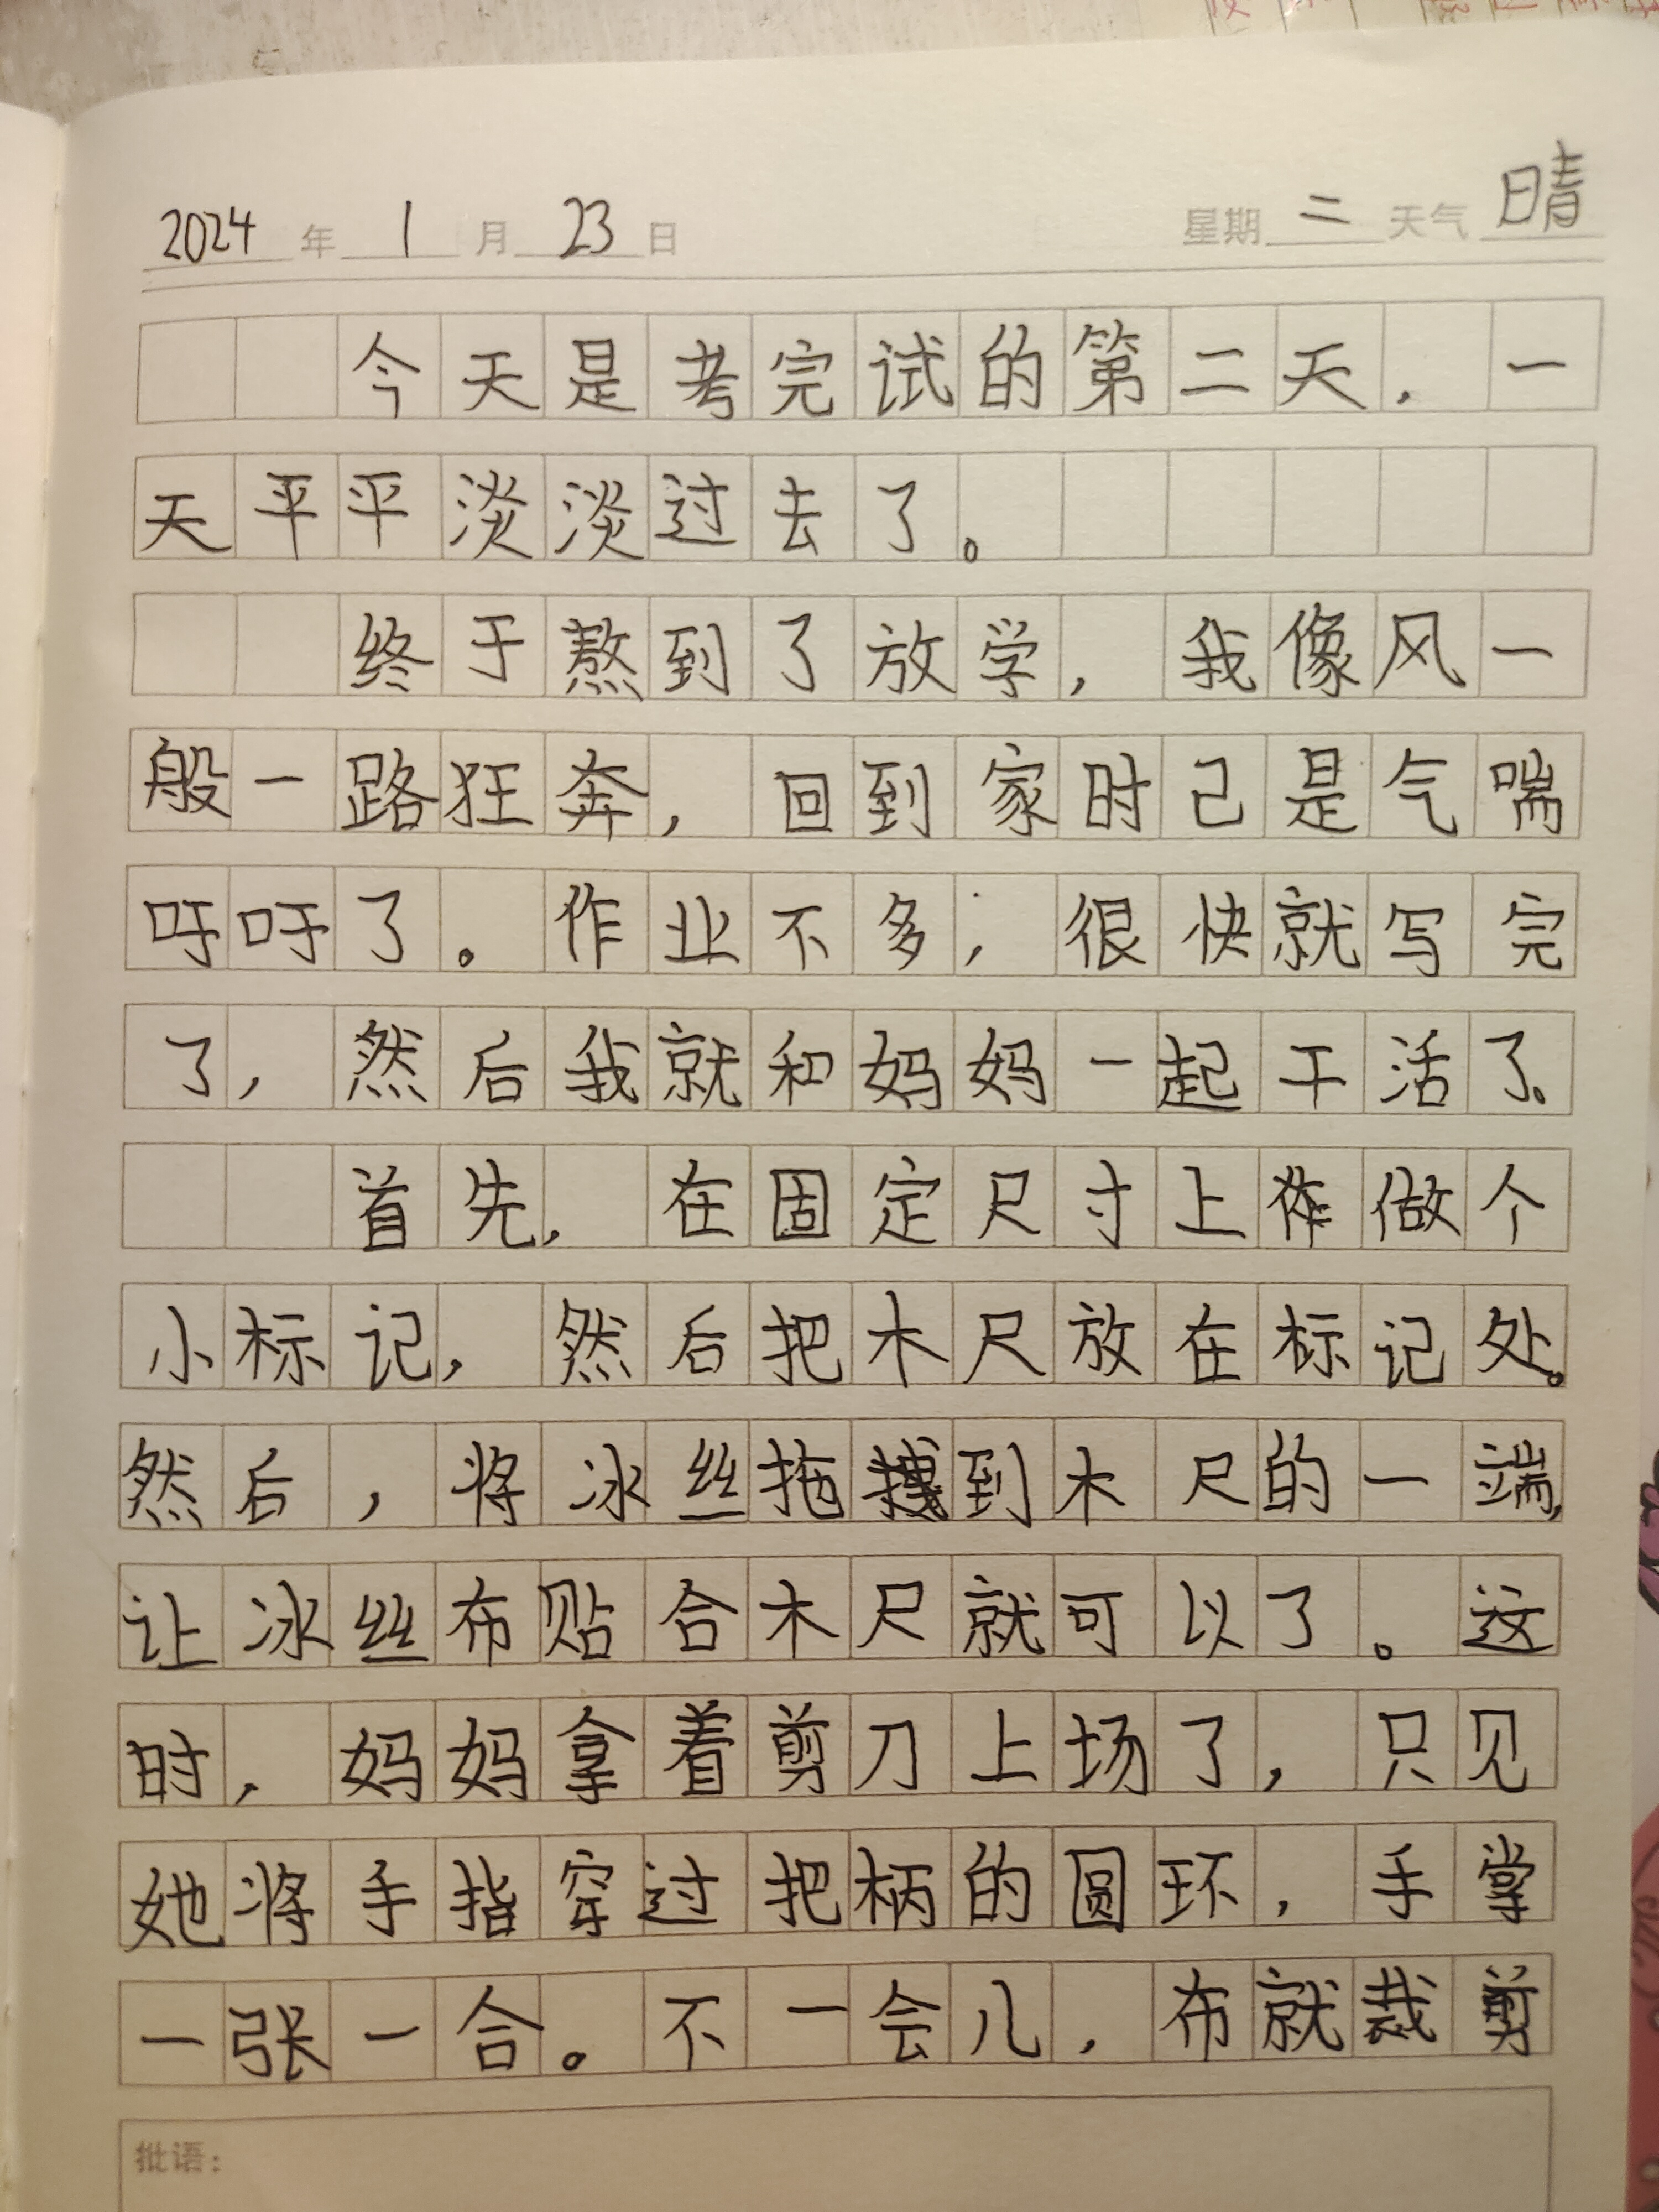 2024年1月23日 星期二天气晴
今天是考完试的第二天，一
天平平淡淡过去了。
终于熬到了放学，我像风一
般一路狂奔，回到家时己是气喘
吁吁了。作业不多，很快就写完
了，然后我就和妈妈一起干活了。
首先，在固定尺寸上做个
小标记，然后把木尺放在标记处。
然后，将冰丝拖到木尺的一端，
让冰丝布贴合木尺就可以了。这
时，妈妈拿着剪刀上场了，只见
她将手指穿过把柄的圆环，手掌
一张一合。不一会儿，布就裁剪
批语：